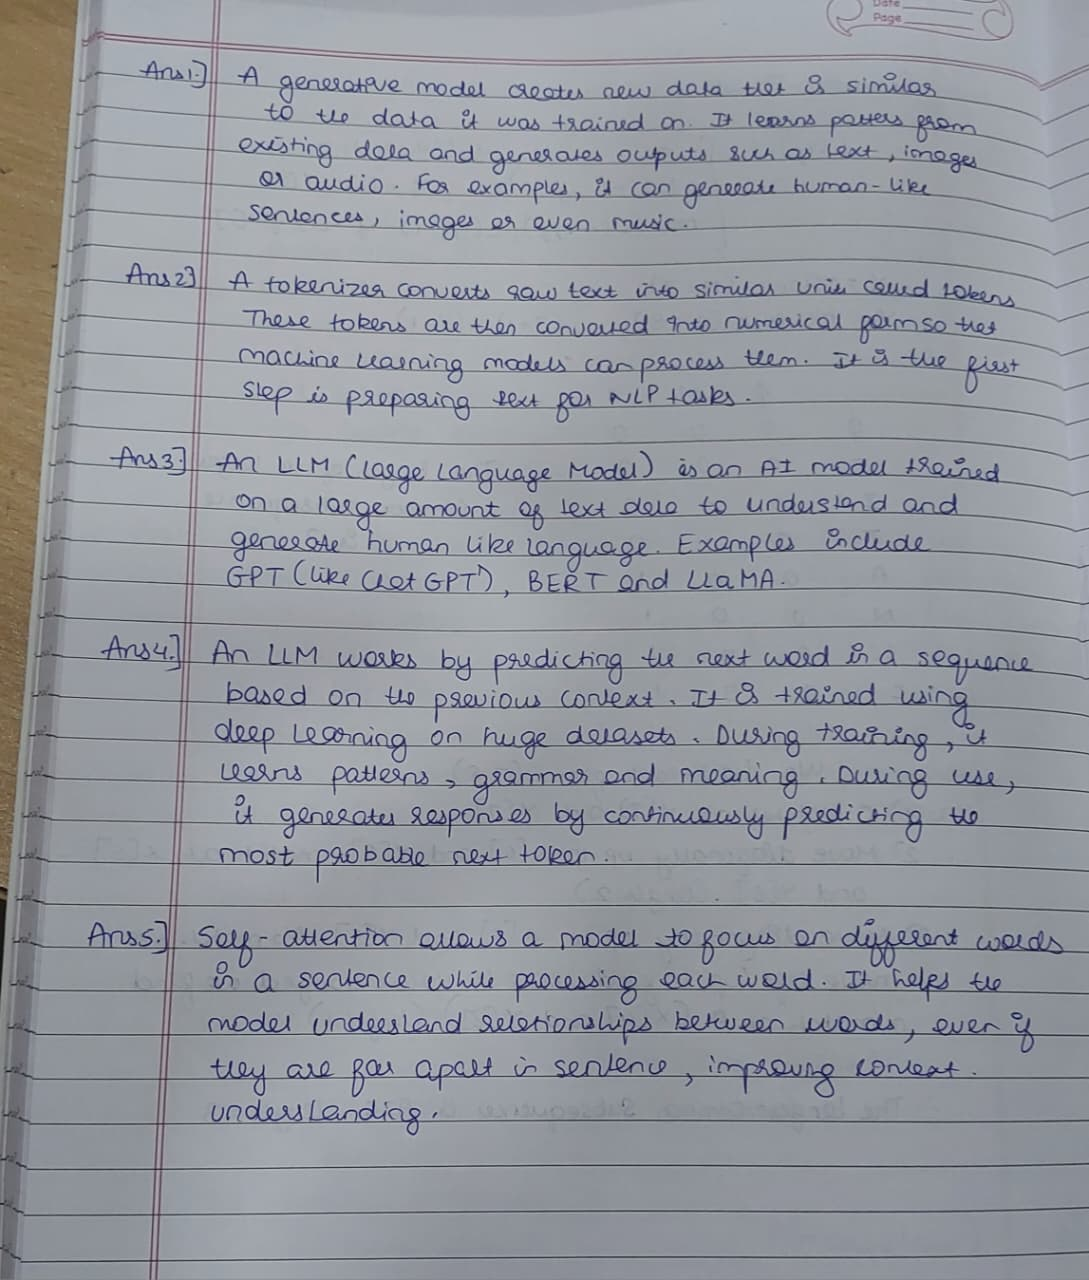 Date
Page
Ans1.] A generative model creates new data that is similar
to the data it was trained on. It learns patters from
existing data and generates outputs such as text, images
or audio. For examples, it can generate human-like
sentences, images or even music.
Ans2] A tokenizer converts raw text into similar units called tokens
These tokens are then converted into numerical form so that
machine learning models can process them. It is the first
step is preparing text for NLP tasks.
Ans3.] An LLM (Large Language Model) is an AI model trained
on a large amount of text data to understand and
generate human like language. Examples include
GPT (like ChatGPT), BERT and LLaMA.
Ans4.] An LLM works by predicting the next word in a sequence
based on the previous context. It is trained using
deep learning on huge datasets. During training, it
learns patterns, grammar and meaning. During use,
it generates responses by continuously predicting the
most probable next token.
Ans5.] Self-attention allows a model to focus on different words
in a sentence while processing each word. It helps the
model understand relationships between words, even if
they are far apart in sentence, improving context.
understanding.